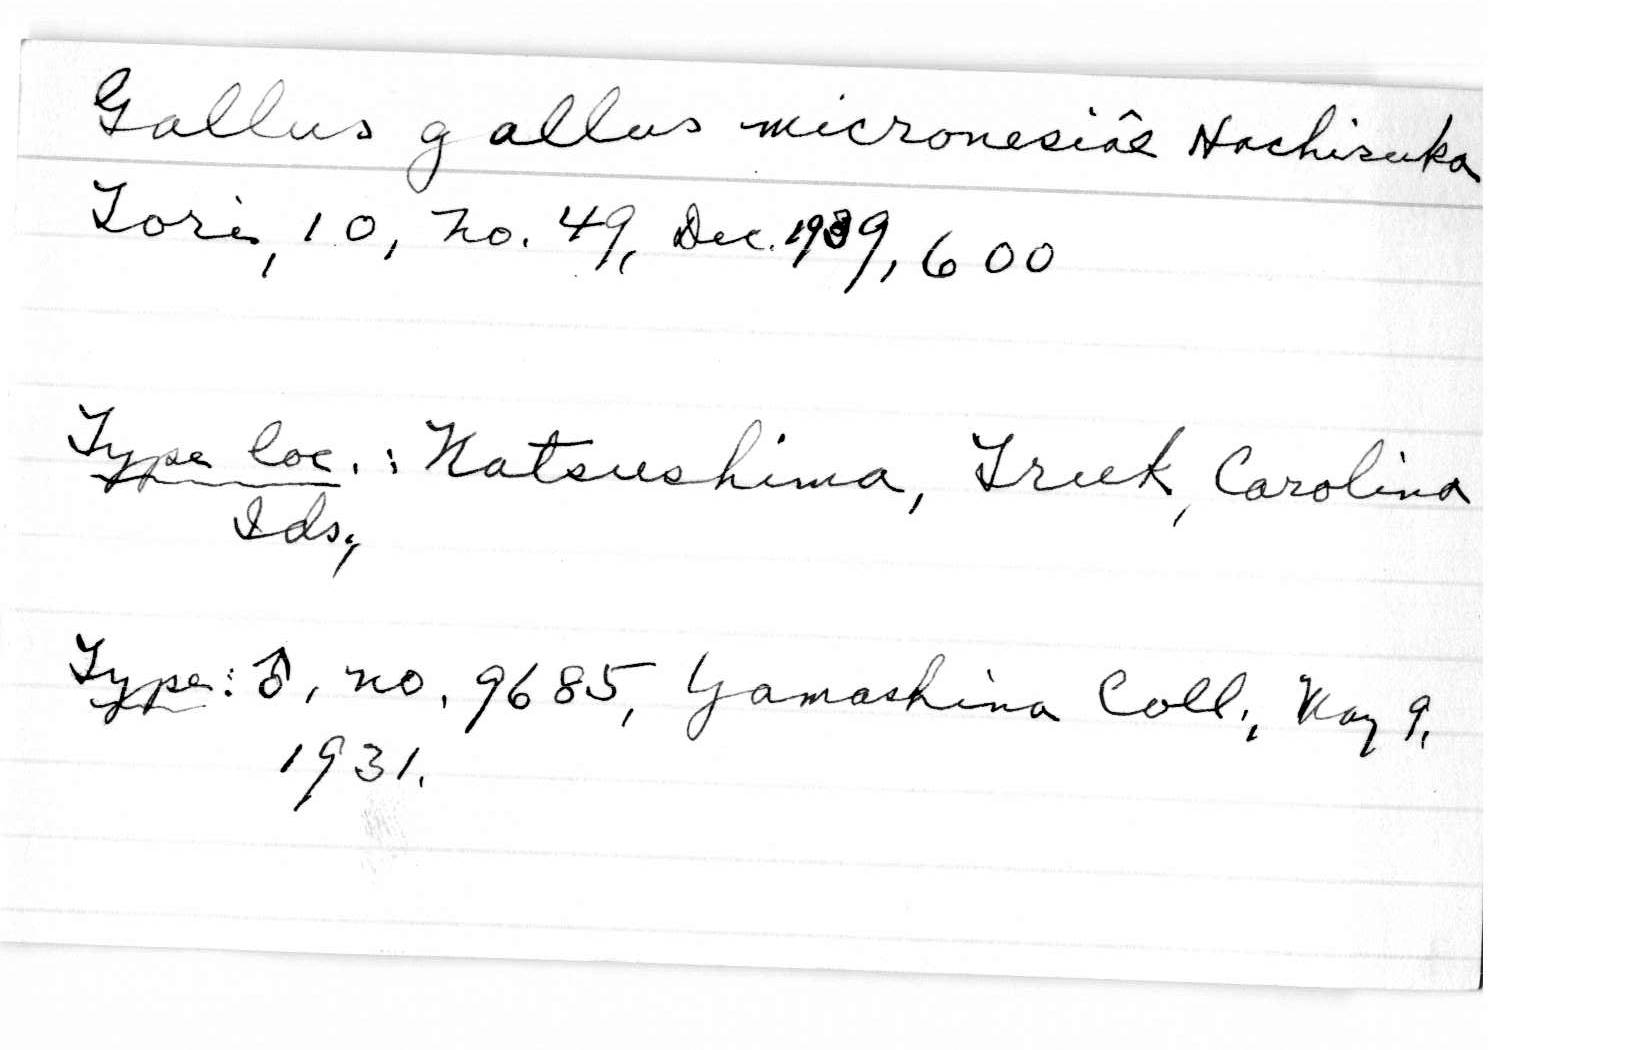 Gallus gallus micronesiae Hachisuka
Tori, 10, no. 49, Dec. 1939, 600
Type loc.: Natsushima, Truk, Carolina
Ids,
Type: ♂, no. 9685, Yamashina Coll., May 9,
1931.